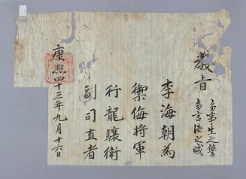 敎旨
李海朝爲
禦侮將軍
行龍驤衛
副司直者
康熙四十三年九月十六日